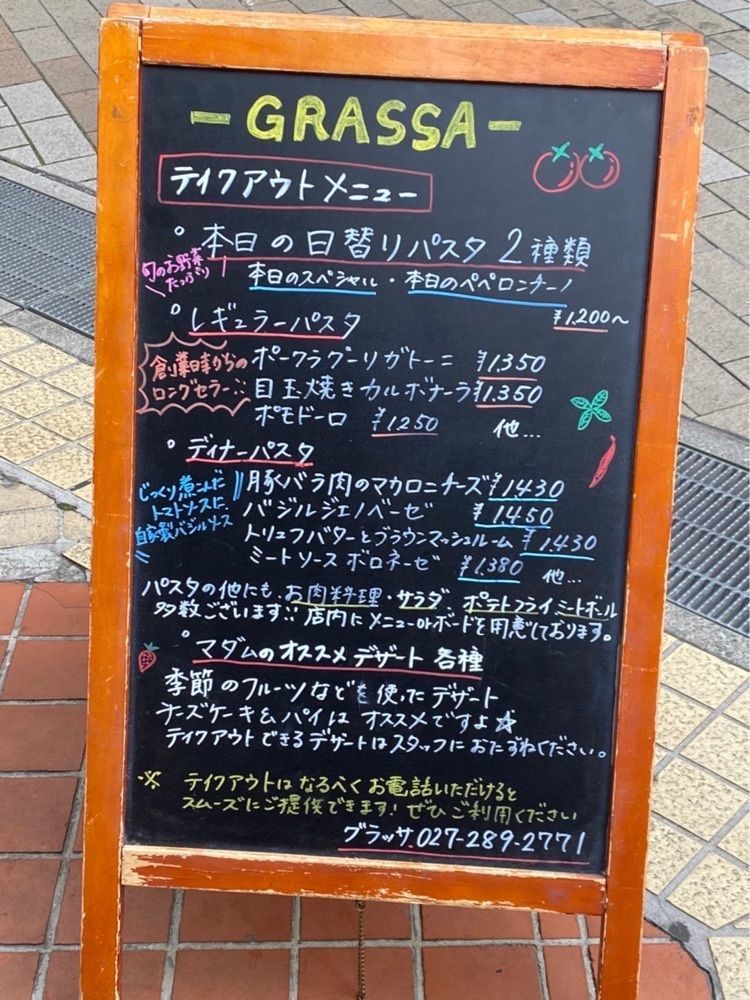 -GRASSA-
テイクアウトメニュー
。本日の日替りパスタ 2種類
旬のお野菜
たっぷり
本日のスペシャル・本日のペペロンチーノ
¥1,200〜
。レギュラーパスタ
創業時からの
ロングセラー!!
ポークラグーリガトーニ ¥1,350
目玉焼きカルボナーラ ¥1,350
ポモドーロ ¥1250 他...
。ディナーパスタ
じっくり煮込んだ
トマトソースに
自家製バジルソース
豚バラ肉のマカロニチーズ ¥1430
バジルジェノベーゼ ¥1450
トリュフバターとブラウンマッシュルーム ¥1430
ミートソースボロネーゼ ¥1380 他...
パスタの他にも、お肉料理・サラダ、ポテトフライ ミートボール
多数ございます!! 店内にメニューorボードを用意しております。
。マダムのオススメデザート 各種
季節のフルーツなどを使ったデザート
チーズケーキ&パイは オススメですよ☆
テイクアウトできるデザートはスタッフにおたずねください。
※ テイクアウトは なるべく お電話いただけると
スムーズにご提供できます! ぜひ ご利用ください
グラッサ 027-289-2771